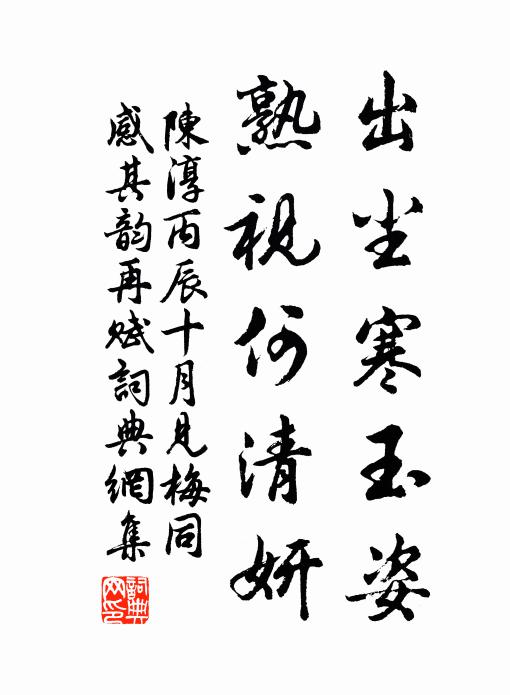 出尘寒玉姿
熟視何清妍
陳淳丙辰十月見梅同
感其韵再赋詞典網集
詞典網印